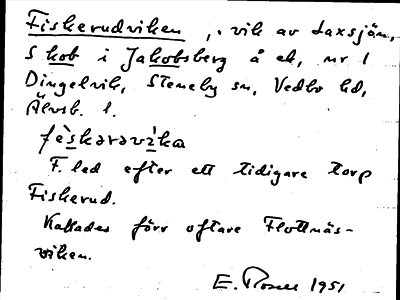 Fiskerudviken, vik av Laxsjön,
S kob i Jakobsberg å ek, nr 1
Dingelvik, Steneby sn, Vedbo hd,
Älvsb. l.
fèskaravìka
F. led efter ett tidigare torp
Fiskerud.
Kallades förr oftare Flottnäs-
viken.
E. Rosell 1951